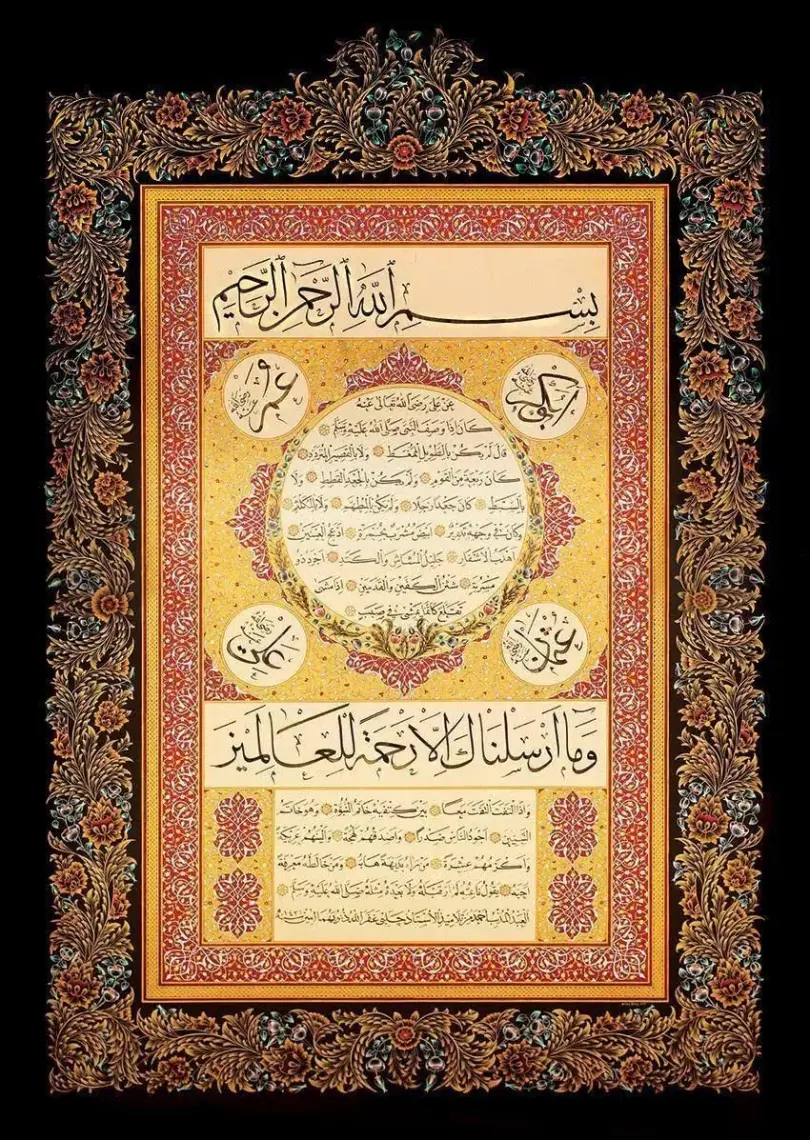 بسم الله الرحمن الرحيم
ابوبكر
عمر
عن علي رضي الله تعالى عنه
كان اذا وصف النبي صلى الله عليه وسلم
قال لم يكن بالطويل الممغط ولا بالقصير المتردد
كان ربعة من القوم ولم يكن بالجعد القطط ولا
بالسبط كان جعدا رجلا ولم يكن بالمطهم ولا بالمكلثم
وكان في وجهه تدوير ابيض مشرب بحمرة ادعج العينين
اهدب الاشفار جليل المشاش والكتد اجرد ذو
مسربة شثن الكفين والقدمين اذا مشى
تقلع كانما يمشي في صبب
عثمان
علي
وما ارسلناك الا رحمة للعالمين
واذا التفت التفت معا بين كتفيه خاتم النبوة وهو خاتم
النبيين اجود الناس صدرا واصدقهم لهجة والينهم عريكة
واكرمهم عشرة من راه بديهة هابه ومن خالطه معرفة
احبه يقول ناعته لم ار قبله ولا بعده مثله صلى الله عليه وسلم
غفر الله ذنوبهما امين